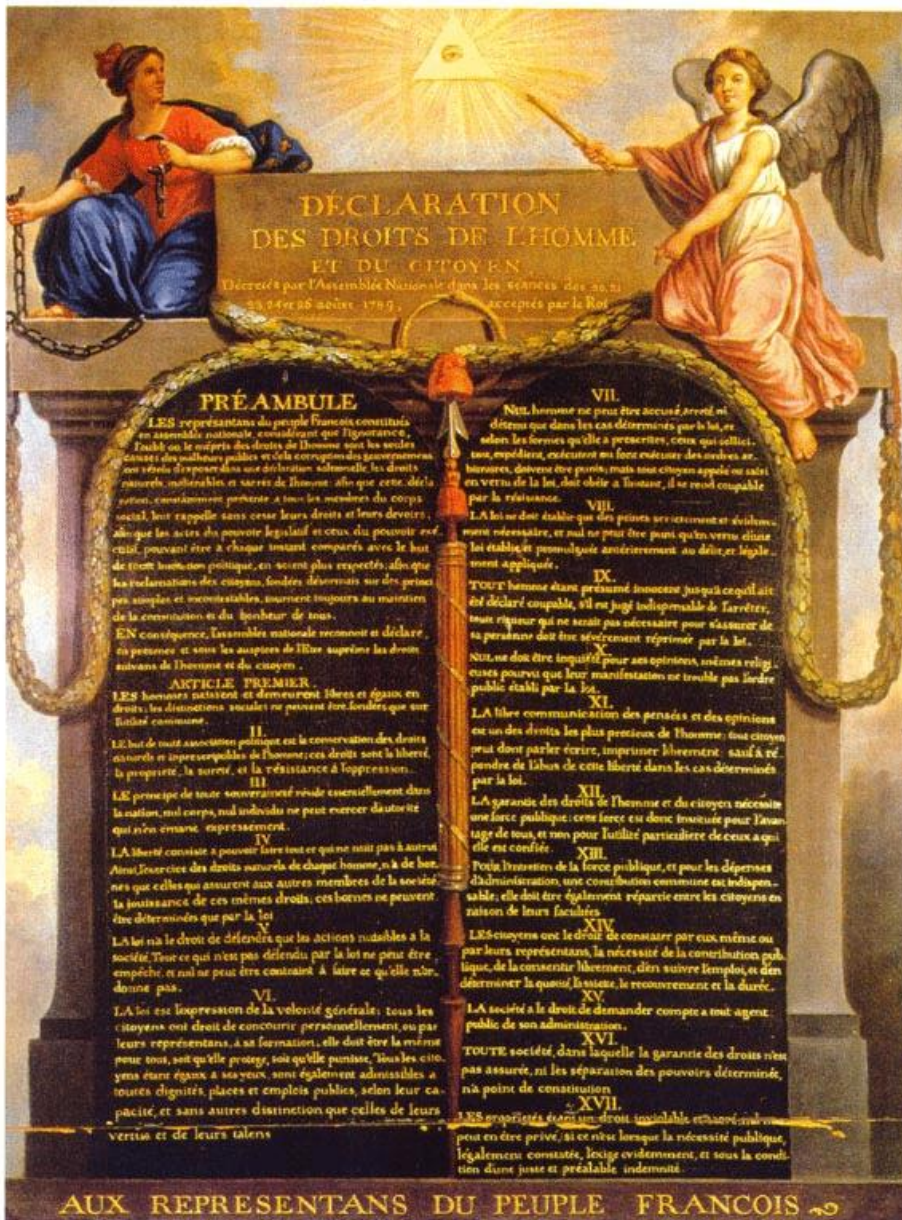 DÉCLARATION
DES DROITS DE L'HOMME
ET DU CITOYEN,
Décretés par l'Assemblée Nationale dans les séances des 20, 21
23, 24 et 26 août 1789, acceptés par le Roi
PRÉAMBULE
LES représentans du peuple François constitués
en assemblée nationale, considérant que l'ignorance,
l'oubli ou le mépris des droits de l'homme sont les seules
causes des malheurs publics et de la corruption des gouvernemens
ont résolu d'exposer dans une déclaration solemnelle, les droits
naturels, inaliénables et sacrés de l'homme; afin que cette décla
ration, constamment présente à tous les membres du corps
social, leur rappelle sans cesse leurs droits et leurs devoirs;
afin que les actes du pouvoir législatif et ceux du pouvoir exé
cutif, pouvant être à chaque instant comparés avec le but
de toute institution politique, en soient plus respectés; afin que
les réclamations des citoyens, fondées désormais sur des princi
pes simples et incontestables, tournent toujours au maintien
de la constitution et du bonheur de tous.
EN conséquence, l'assemblée nationale reconnoit et déclare,
en presence et sous les auspices de l'Etre suprême les droits
suivans de l'homme et du citoyen.
ARTICLE PREMIER.
LES hommes naissent et demeurent libres et égaux en
droits; les distinctions sociales ne peuvent être fondées que sur
l'utilité commune.
II.
LE but de toute association politique est la conservation des droits
naturels et inprescriptibles de l'homme; ces droits sont la liberté,
la propriété, la sureté, et la résistance à l'oppression.
III
LE principe de toute souveraineté réside essentiellement dans
la nation, nul corps, nul individu ne peut exercer d'autorité
qui n'en émane expressement.
IV
LA liberté consiste a pouvoir faire tout ce qui ne nuit pas à autrui
Ainsi, l'exercice des droits naturels de chaque homme, n'a de bor
nes que celles qui assurent aux autres membres de la société
la jouissance de ces mêmes droits; ces bornes ne peuvent
être déterminées que par la loi
V
LA loi n'a le droit de défendre que les actions nuisibles a la
société. Tout ce qui n'est pas défendu par la loi ne peut être
empêché, et nul ne peut être contraint à faire ce qu'elle n'or-
donne pas.
VI.
LA loi est l'expression de la volonté générale; tous les
citoyens ont droit de concourir personnellement, ou par
leurs représentans, à sa formation; elle doit être la même
pour tous, soit qu'elle protege, soit qu'elle punisse, Tous les cito
yens étant égaux à ses yeux, sont également admissibles a
toutes dignités, places et emplois publics, selon leur ca
pacité, et sans autres distinction que celles de leurs
vertus et de leurs talens
VII.
NUL homme ne peut être accusé, arreté, ni
détenu que dans les cas déterminés par la loi, et
selon les formes qu'elle a prescrites, ceux qui sollici-
tent, expédient, exécutent ou font exécuter des ordres ar-
bitraires, doivent être punis; mais tout citoyen appelé ou saisi
en vertu de la loi, doit obéir a l'instant, il se rend coupable
par la résistance.
VIII.
LA loi ne doit établir que des peines strictement et évidem-
ment nécessaire, et nul ne peut être puni qu'en vertu d'une
loi établie et promulguée antérieurement au délit, et légale
ment appliquée.
IX.
TOUT homme étant présumé innocent jusqu'a ce qu'il ait
été déclaré coupable, s'il est jugé indispensable de l'arrêter,
toute rigueur qui ne serait pas nécessaire pour s'assurer de
sa personne doit être sévèrement réprimée par la loi.
X
NUL ne doit être inquiété pour ses opinions, mêmes religi
euses pourvu que leur manifestation ne trouble pas l'ordre
public établi par la loi.
XI.
LA libre communication des pensées et des opinions
est un des droits les plus precieux de l'homme; tout citoyen
peut dont parler écrire, imprimer librement: sauf à ré
pondre de l'abus de cette liberté dans les cas déterminés
par la loi.
XII.
LA garantie des droits de l'homme et du citoyen nécessite
une force publique; cette force est donc instituée pour l'avan
tage de tous, et non pour l'utilité particuliere de ceux a qui
elle est confiée.
XIII.
POUR l'entretien de la force publique, et pour les dépenses
d'administration, une contribution commune est indispen-
sable; elle doit être également répartie entre les citoyens en
raison de leurs facultées
XIV.
LES citoyens ont le droit de constater par eux même ou
par leurs représentans, la nécessité de la contribution pub
lique, de la consentir librement, d'en suivre l'emploi, et d'en
déterminer la quotité, l'assiette, le recouvrement et la durée.
XV.
LA société a le droit de demander compte a tout agent
public de son administration.
XVI.
TOUTE société, dans laquelle la garantie des droits n'est
pas assurée, ni les séparation des pouvoirs déterminée,
n'a point de constitution
XVII.
LES propriétés étant un droit inviolable et sacré, nul ne
peut en être privé, si ce n'est lorsque la nécessité publique,
légalement constatée, l'exige evidemment, et sous la condi
tion d'une juste et préalable indemnité.
AUX REPRESENTANS DU PEUPLE FRANCOIS